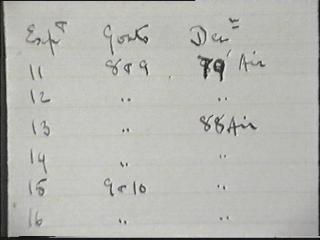 Expt Goats Decn
11 8 & 9 79' Air
12 " "
13 " 88 Air
14 " "
15 9 & 10 "
16 " "